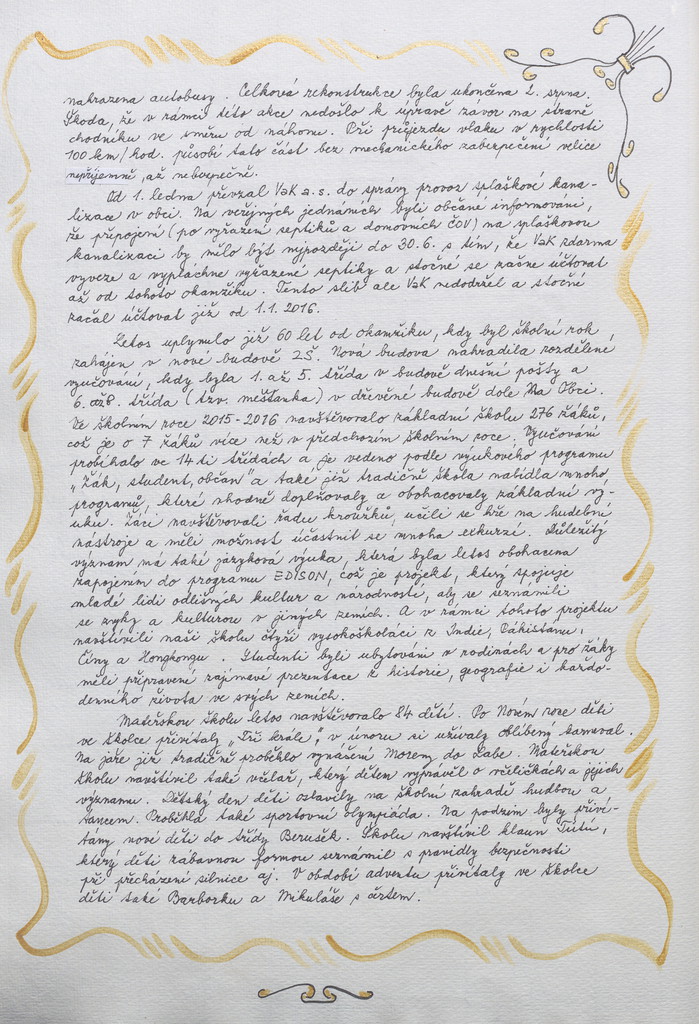 nahrazena autobusy. Celková rekonstrukce byla ukončena 2. srpna.
Škoda, že v rámci této akce nedošlo k úpravě závor na straně
chodníku ve směru od náhonu. Při průjezdu vlaku v rychlosti
100 km/hod. působí tato část bez mechanického zabezpečení velice
nepříjemně, až nebezpečně.
Od 1. ledna převzal VaK a.s. do správy provoz splaškové kana-
lizace v obci. Na veřejných jednáních byli občané informováni,
že připojení (po vyřazení septiků a domovních ČOV) na splaškovou
kanalizaci by mělo být nejpozději do 30.6. s tím, že VaK zdarma
vyveze a vypláchne vyřazené septiky a stočné se začne účtovat
až od tohoto okamžiku. Tento slib ale VaK nedodržel a stočné
začal účtovat již od 1.1.2016.
Letos uplynulo již 60 let od okamžiku, kdy byl školní rok
zahájen v nové budově ZŠ. Nová budova nahradila rozdělené
vyučování, kdy byla 1. až 5. třída v budově dnešní pošty a
6. až 8. třída (tzv. měšťanka) v dřevěné budově dole Na Obci.
Ve školním roce 2015-2016 navštěvovalo základní školu 276 žáků,
což je o 7 žáků více než v předchozím školním roce. Vyučování
probíhalo ve 14 ti třídách a je vedeno podle výukového programu
„Žák, student, občan" a také již tradičně škola nabídla mnoho
programů, které vhodně doplňovaly a obohacovaly základní vý-
uku. Žáci navštěvovali řadu kroužků, učili se hře na hudební
nástroje a měli možnost účastnit se mnoha exkurzí. Důležitý
význam má také jazyková výuka, která byla letos obohacena
zapojením do programu EDISON, což je projekt, který spojuje
mladé lidi odlišných kultur a národností, aby se seznámili
se zvyky a kulturou v jiných zemích. A v rámci tohoto projektu
navštívili naši školu čtyři vysokoškoláci z Indie, Pákistánu,
Číny a Hongkongu. Studenti byli ubytováni v rodinách a pro žáky
měli připravené zajímavé prezentace z historie, geografie i každo-
denního života ve svých zemích.
Mateřskou školu letos navštěvovalo 84 dětí. Po Novém roce děti
ve školce přivítaly „Tři krále", v únoru si užívaly oblíbený karneval.
Na jaře již tradičně proběhlo vynášení Moreny do Labe. Mateřskou
školu navštívil také včelař, který dětem vyprávěl o včeličkách a jejich
významu. Dětský den děti oslavily na školní zahradě hudbou a
tancem. Proběhla také sportovní olympiáda. Na podzim byly přiví-
tány nové děti do třídy Berušek. Školu navštívil klaun Tútú,
který děti zábavnou formou seznámil s pravidly bezpečnosti
při přecházení silnice aj. V období adventu přivítaly ve školce
děti také Barborku a Mikuláše s čertem.